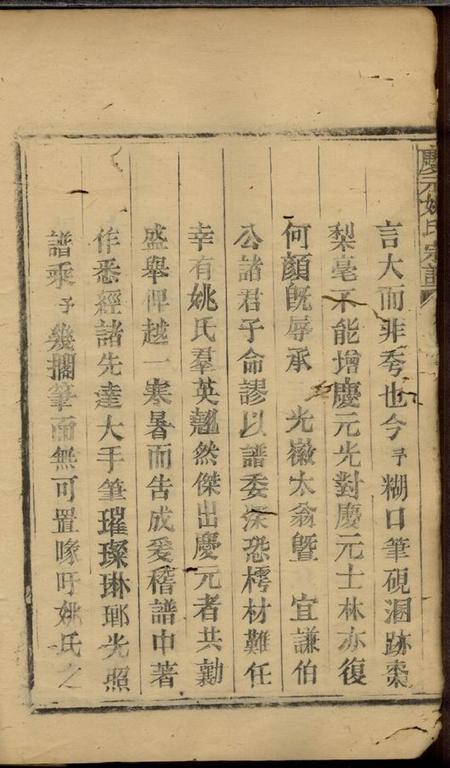 慶元姚氏宗譜
言大而非夸也今予糊口筆硯溷跡棗
梨毫不能增慶元光對慶元士林亦復
何顏旣辱承 光徽太翁曁 宜謙伯
公諸君子命謬以譜委深恐樗材難任
幸有姚氏羣英翹然傑出慶元者共勷
盛舉俾越一寒暑而告成爰稽譜中著
作悉經諸先達大手筆璀璨琳瑯光照
譜乘予幾擱筆而無可置喙吁姚氏之